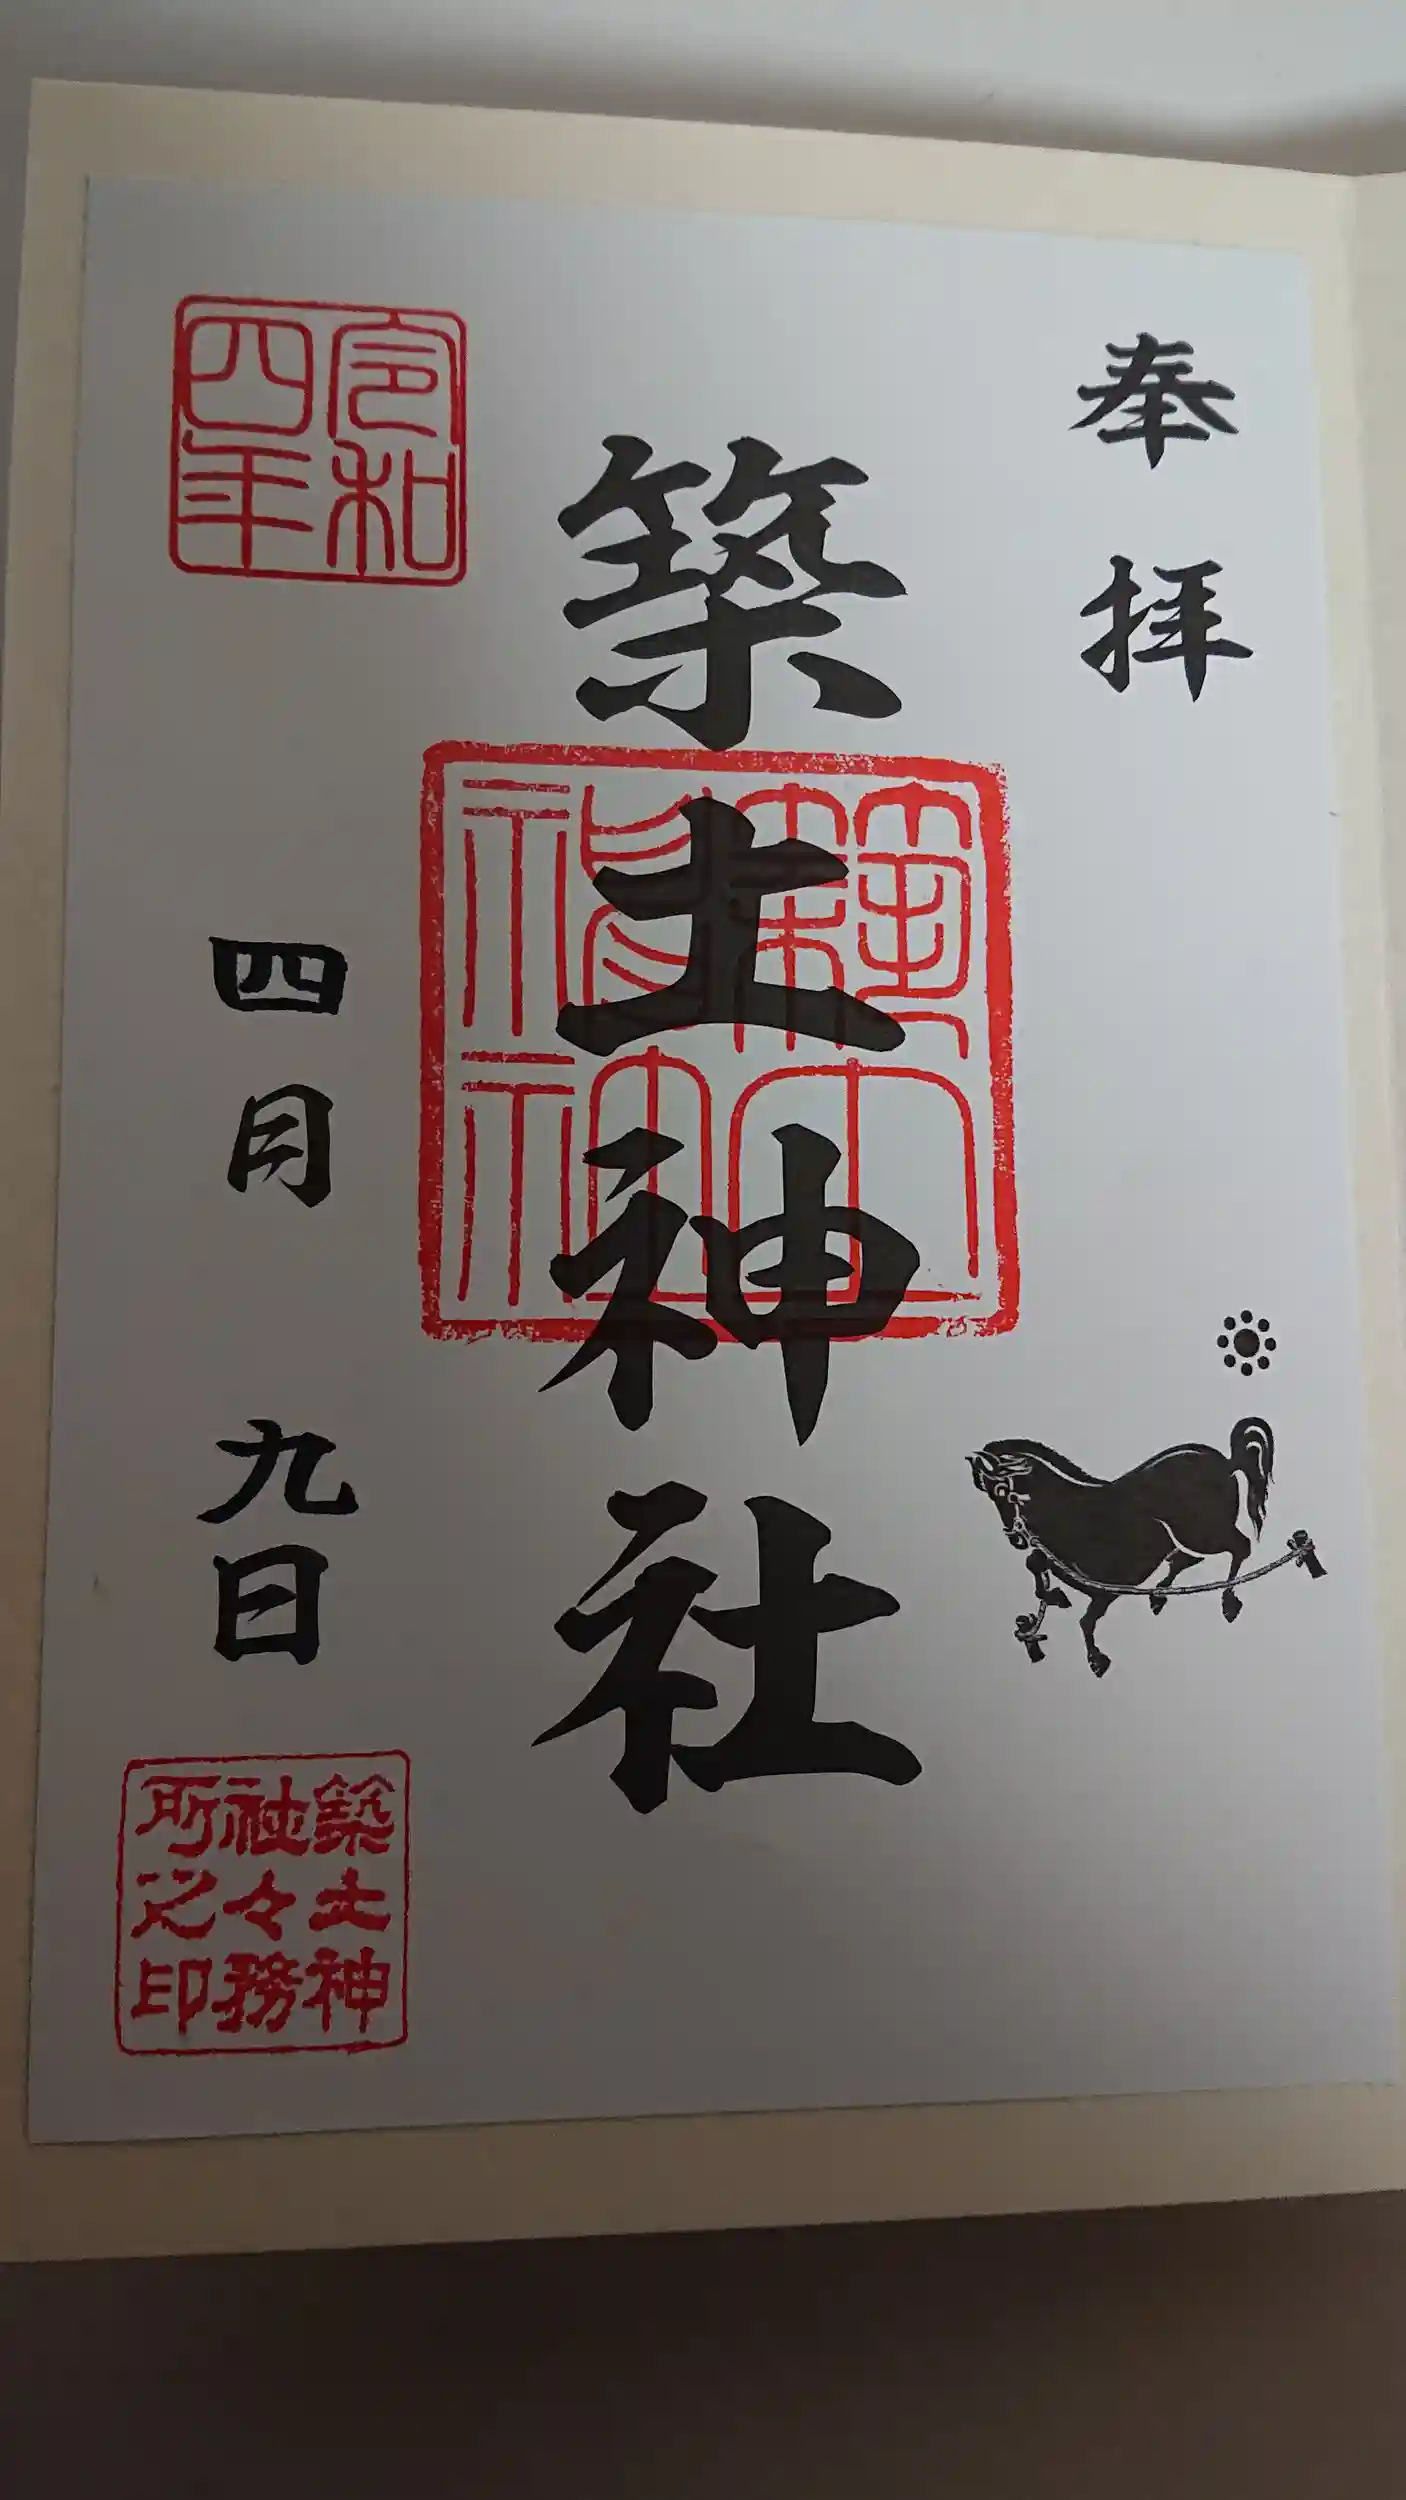 奉拝
築土神社
令和
四年
四月九日
築土神
社々務
所之印